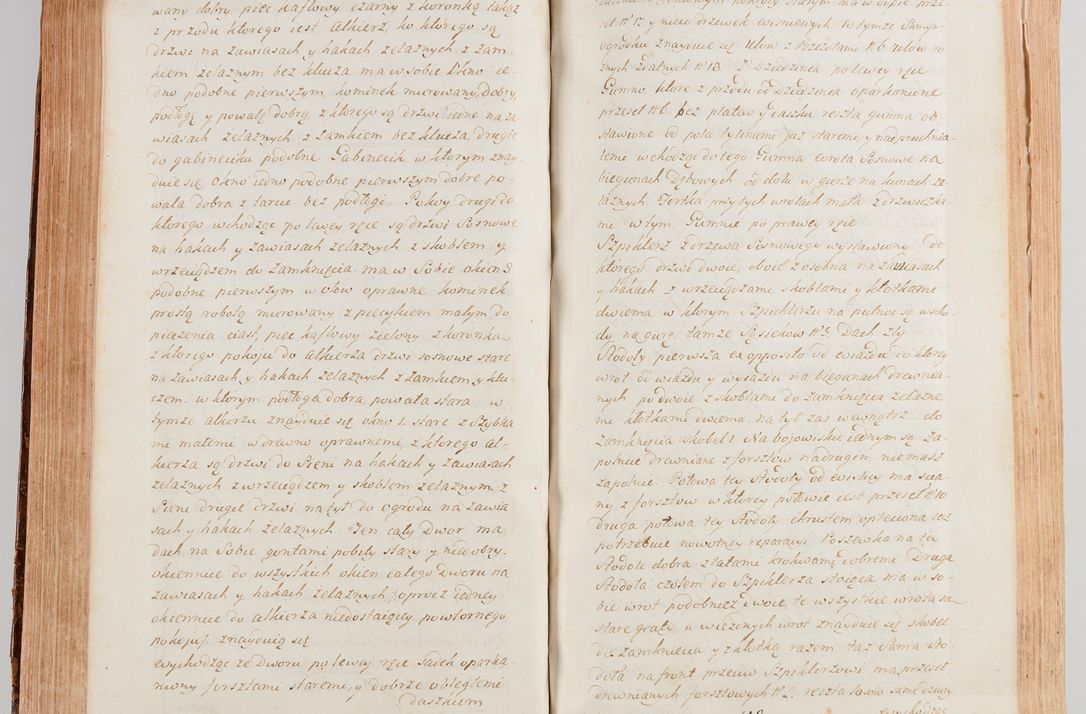 wany dobry, piec kaflowy czarny z koronką także
z przodu ktorego iest alkierz, ko ktorego są
drzwi na zawiasach y hakach zelaznych z zam,
kiem zelaznym bez klucza ma w sobie Okno ie-
dno podobne pierwszym kominek murowany, dobry,
podłogę y powałę dobrą, z ktorego są drzwi iedne na za
wiasach zelaznych z zamkiem bez klucza drugie
do gabineciku podobne. Gabinecik w ktorym znay-
duie się Okno iedno podobne pierwszym dobre po-
wała dobra z tarcic bez podłogi. Pokoy drugi do
ktorego wchodząc po lewey ręce są drzwi Sosnowe
na hakach y zawiasach zelaznych z skoblem y
wrzeciądzem do zamknięcia ma w Sobie okien 3
podobne pierwszym w ołow oprawne kominek
prostą robotą murowany z piecykiem małym do
pieczenia ciast, piec kaflowy zielony z koronką
z ktorego pokoju do alkierza drzwi sosnowe stare
na zawiasach y hakach zelaznych z zamkiem y klu-
czem. w ktorym podłoga dobra powała stara w
tymze alkierzu znayduie się okno 1. stare z Szybka
mi małemi w drewno oprawnemi, z ktorego al-
kierza są drzwi do Sieni na hakach y zawiasach
zelaznych z wrzeciądzem y skoblem zelaznym. z
Sieni drugie drzwi na tył do ogrodu na zawia
sach y hakach zelaznych. Ten cały Dwor ma
dach na Sobie gontami pobity stary y niedobry.
okiennice do wszystkich okien całego Dworu na
zawiasach y hakach zelaznych, /oprocz iedney
okiennice do alkierza niedostaiącey powtornego
pokoju/ znayduią się
Wychodząc ze Dworu po lewey ręce Sadek oparka-
niony forsztami staremi, y dobrze obległemi
daszkiem
set N 17 y nieco drzewek wisniowych w tymze Samym
ogrodku znayduie się Ulow z Pszczołami N 6 ulow ro
znych zdatnych N 18. Z Dziedzinca po lewey ręce
Gumno, ktore z przodu od Dziedzinca oparkanione
przeseł N 6. bez płatew y daszku reszta gumna ob-
stawione od pola tyłemi juz staremi y nadpruchnia-
łemi wchodząc do tego Gumna wrota Sosnowe na
biegunach Dębowych od dołu w gurze na kunach ze-
laznych. Fortka przy tych wrotach mała z drzwiczka
mi. w tym Gumnie po prawey ręce
Szpiklerz z drzewa Sosnowego wystawiony do
ktorego drzwi dwoie, oboie z osobna na zawiasach
y hakach z wrzeciądzami skoblami y kłotkami
dwiema w ktorym Szpiklerzu na piętro są wscho
dy na gurę. tamze Sąsiekow N 5. Dach zły
Stodoły pierwsza ex opposito od wiazdu do ktorey
wrot od wiazdu y wyiazdu na biegunach drewnia-
nych podwoie z skoblami do zamknięcia zelazne
mi kłotkami dwiema. na tył zas wewnątrz do
zamknięcia skobel 1. Na bojowisku iednym są za-
polnice drewniane z forsztow na drugim niemasz
zapolnic. Połowa tey Stodoły od wisticy ma scia
ny z forsztow w ktorey połowie iest przeseł N 10
druga połowa tey Stodoły chrustem opleciona tez
potrzebuie nowotney reparacyi Poszewka na tey
Stodole dobra z łatami krokwami dobremi. Druga
Stodoła czołem do Szpiklerza stoiąca ma w so-
bie wrot podobniez dwoie, te wszystkie wrota są
stare graty, u wiezdnych wrot znayduie się skobel
do zamknięcia y z kłotką razem. taz Sama sto-
doła na front przeciw Szpiklerzowi ma przeseł
drewnianych forsztowych N 2. reszta
Wychodząc